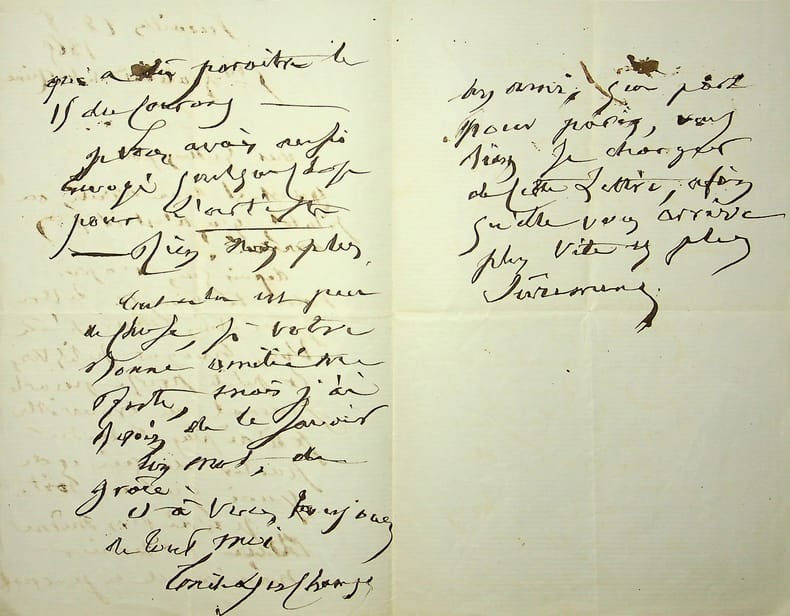 qui a dû paroître le
15 du Courant —
Je vous avais aussi
Envoyé quelque chose
pour l'artiste
— Rien non plus,
tout cela est peu
de chose, si votre
Bonne amitié me
Reste, mais j'ai
Besoin de le Savoir
Un mot, de
grâce.
Et à vous, toujours
de tout moi
un ami, qui part
pour paris, veut
Bien se charger
de Cette Lettre, afin
qu'elle vous arrive
plus vite et plus
Sûrement.